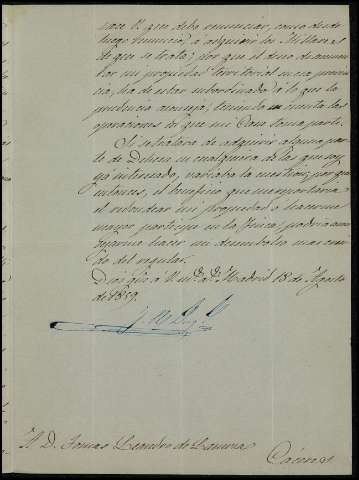 hace V. que debo renunciar, como desde
luego renuncio, á adquirir los Millares
de que se trata; por que el deseo de aumen-
tar mi propiedad territorial en esa provin-
cia, ha de estar subordinado á lo que la
prudencia aconseja, teniendo en cuenta las
operaciones de que mi Casa toma parte.
Si se tratara de adquirir alguna par-
te de Dehesa en cualquiera de las que soy
yá interesado, variaba la cuestion; por que
entonces, el beneficio que me reportaria
el redondear mi propiedad ó hacerme
mayor partícipe en la finca, podria
hacer un desembolso mas creci-
do del regular.
Dios gûe á V. m.s a.s Madrid 18 de Agosto
de 1859.
S.r D. Tomas Leandro de
Cáceres